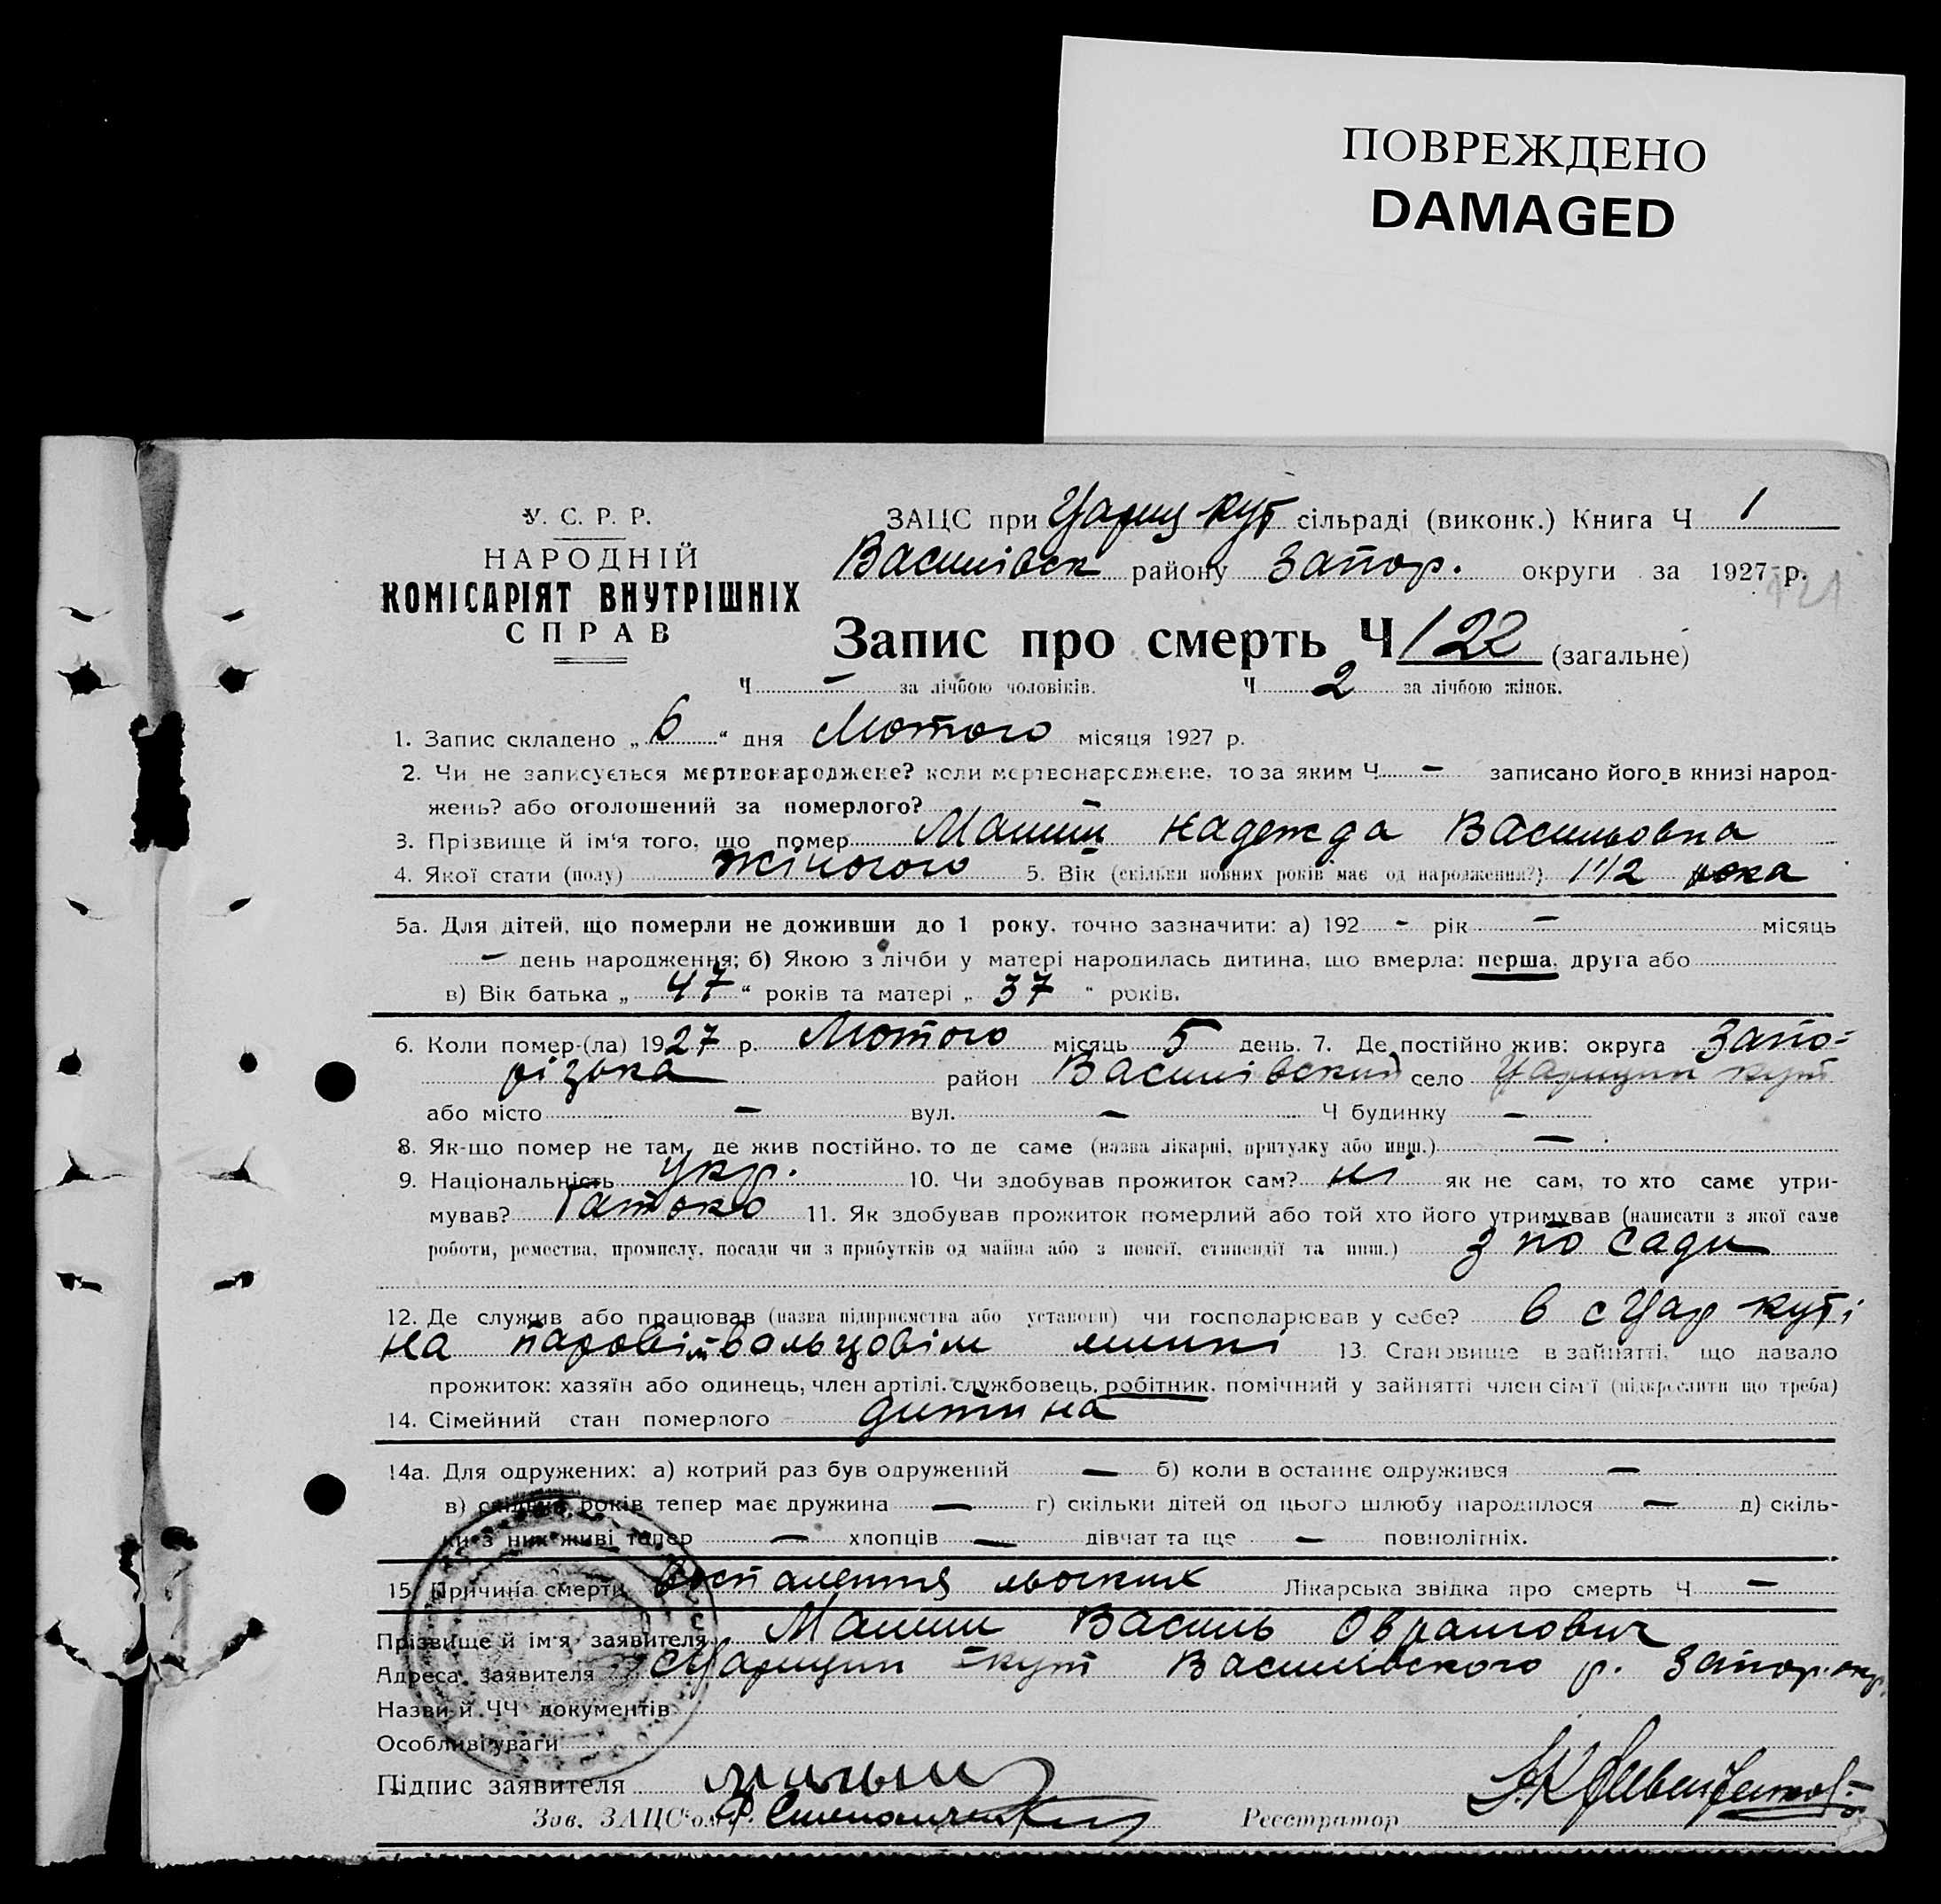 ПОВРЕЖДЕНО
DAMAGED
У. С. Р. Р.
НАРОДНІЙ
КОМІСАРІЯТ ВНУТРІШНІХ
СПРАВ
ЗАЦС при Цариц кут сільраді (виконк.) Книга Ч 1
Василівск району Запор. округи за 1927 р.
121
Запис про смерть Ч 122 (загальне)
Ч - за лічбою чоловіків. Ч 2 за лічбою жінок.
1. Запис складено „ 6 “ дня Лютого місяця 1927 р.
2. Чи не записується мертвонароджене? коли мертвонароджене, то за яким Ч - записано його в книзі народ-
жень? або оголошений за померлого? -
3. Прізвище й ім'я того, що помер Надежда Васильовна
4. Якої стати (полу) жіночого 5. Вік (скільки повних років має од народження?) 1 1/2 рока
5а. Для дітей, що померли не доживши до 1 року, точно зазначити: а) 192 - рік - місяць
- день народження; б) Якою з лічби у матері народилась дитина, що вмерла: перша, друга або
в) Вік батька „ 47 “ років та матері „ 37 “ років.
6. Коли помер-(ла) 1927 р. Лютого місяць 5 день. 7. Де постійно жив: округа Запо-
різька район Василівский село Царицин кут
або місто - вул. - Ч будинку -
8. Як-що помер не там, де жив постійно, то де саме (назва лікарні, притулку або инш.) -
9. Національність укр. 10. Чи здобував прожиток сам? ні як не сам, то хто саме утри-
мував? Батько 11. Як здобував прожиток померлий або той хто його утримував (написати з якої саме
роботи, ремества, промислу, посади чи з прибутків од майна або з пенсії, стипендії та инш.) з по сади
12. Де служив або працював (назва підприємства або установи) чи господарював у себе? в с Цар куті
на паровім вальцовім млині 13. Становище в зайнятті, що давало
прожиток: хазяїн або одинець, член артілі, службовець, робітник, помічний у зайнятті член сім'ї (підкреслити що треба)
14. Сімейний стан померлого дитина
14а. Для одружених: а) котрий раз був одружений - б) коли в останнє одружився -
в) скільки років тепер має дружина - г) скільки дітей од цього шлюбу народилося - д) скіль-
ки з них живі тепер - хлопців - дівчат та ще - повнолітніх.
15. Причина смерти Воспалення льогких Лікарська звідка про смерть Ч -
Прізвище й ім'я заявителя Василь Оврамович
Адреса заявителя с Царицин - кут Василівского р. Запор. окр.
Назви й ЧЧ документів
Особливі уваги
Підпис заявителя
Зав. ЗАЦС'ом Реєстратор